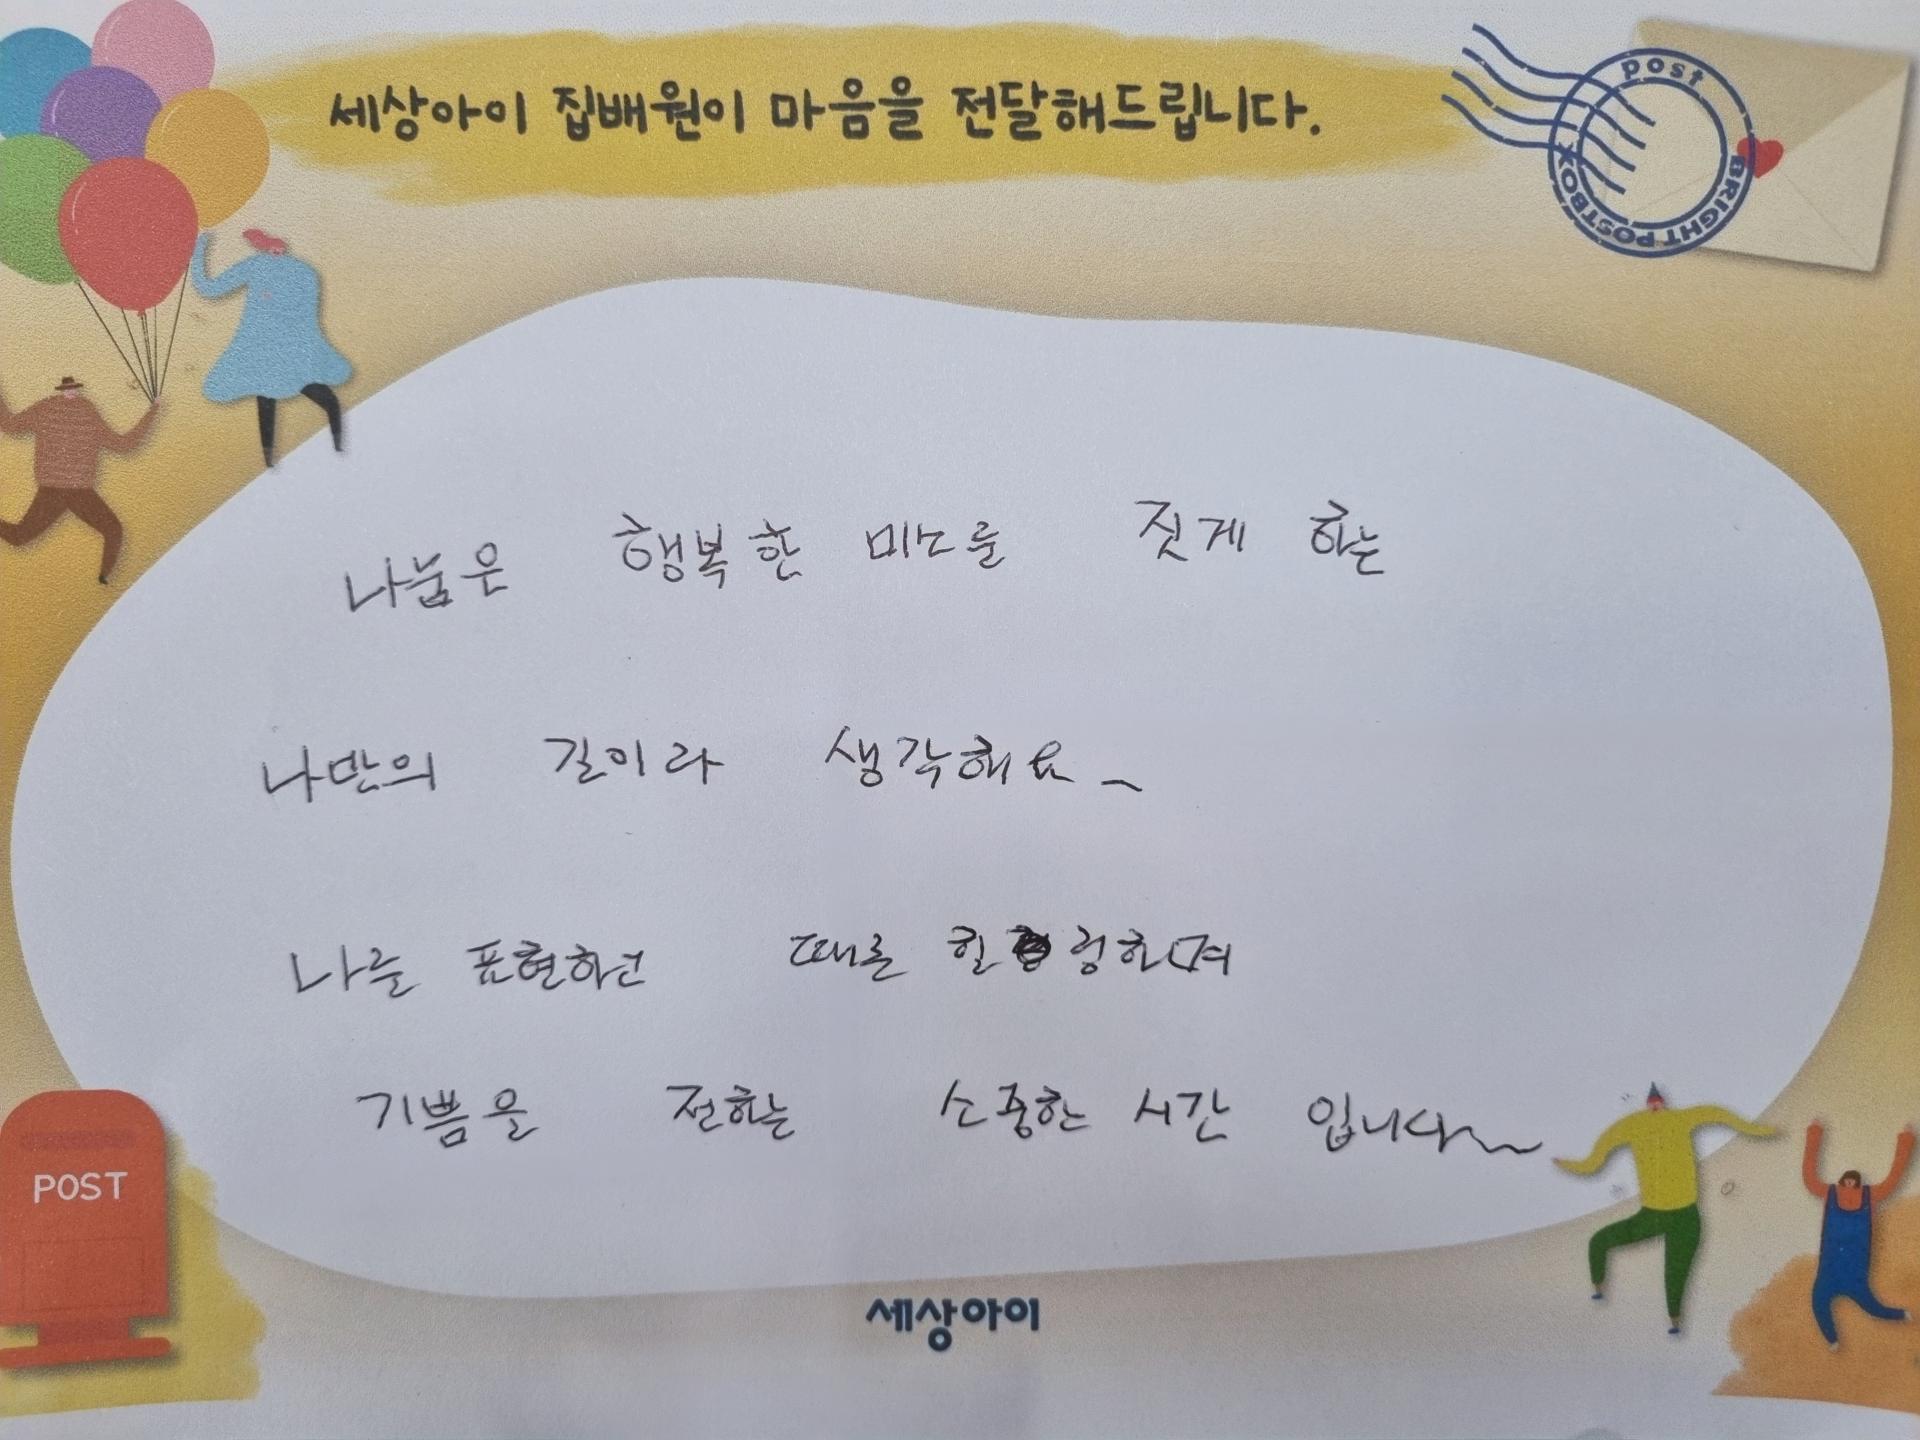 세상아이 집배원이 마음을 전달해드립니다.
post
BRIGHT POSTBOX
나눔은 행복한 미소를 짓게 하는
나만의 길이라 생각해요~
나를 표현하고 때론 힐링하며
기쁨을 전하는 소중한 시간 입니다~
POST
세상아이